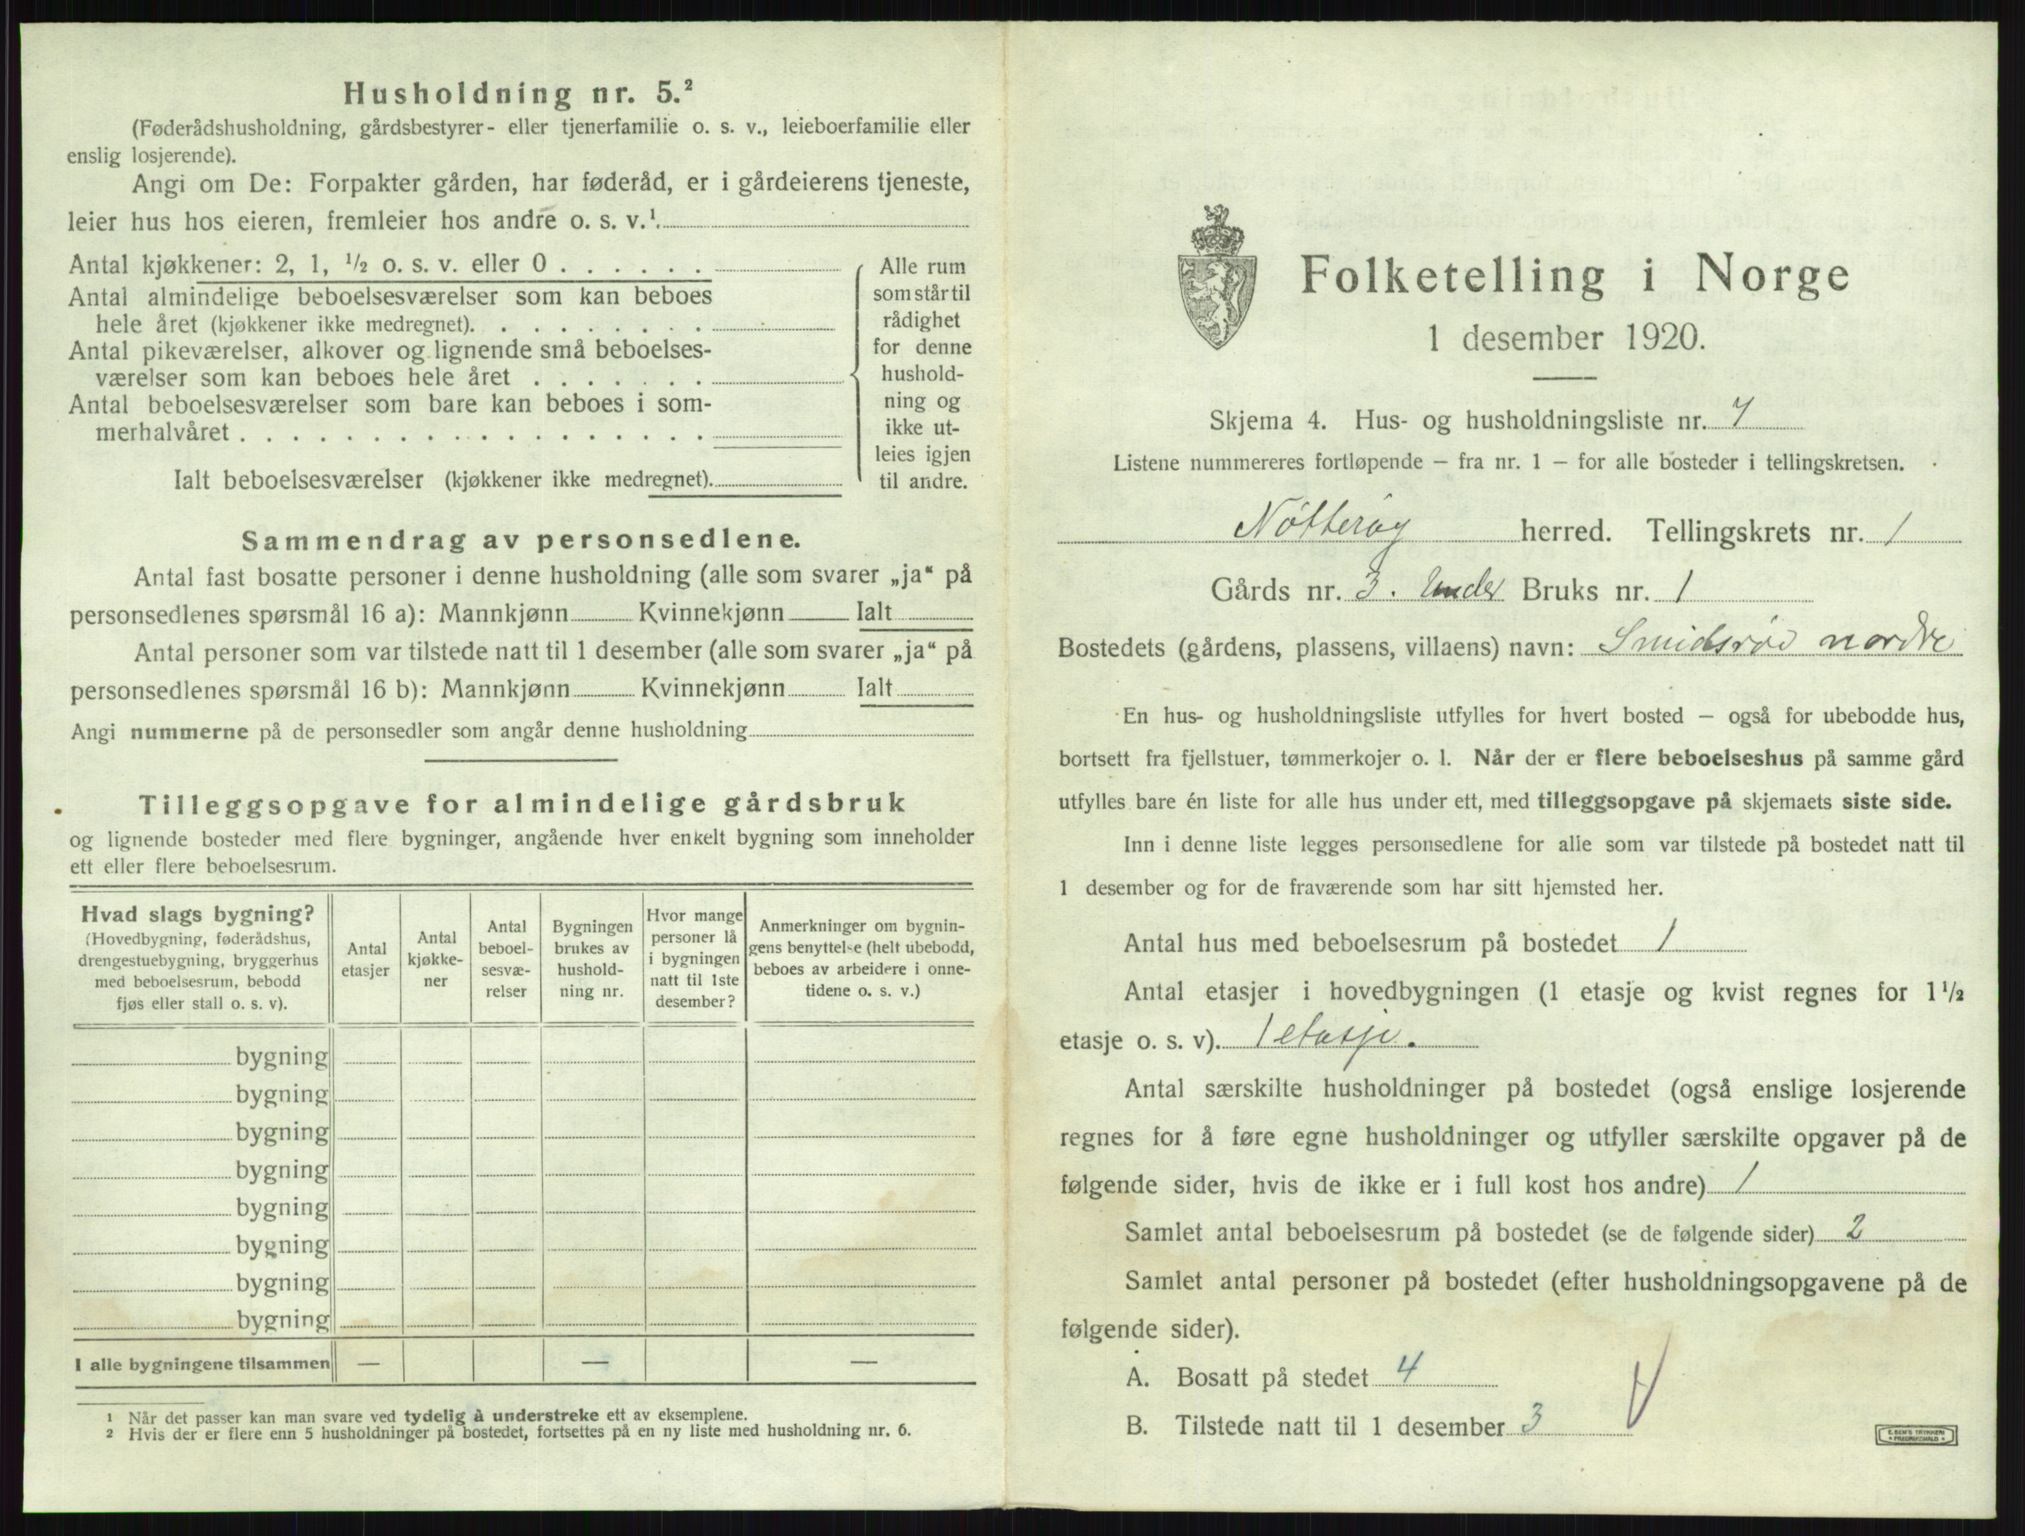 Husholdning nr. 5.²
(Føderådshusholdning, gårdsbestyrer- eller tjenerfamilie o. s. v., leieboerfamilie eller
enslig losjerende).
Angi om De: Forpakter gården, har føderåd, er i gårdeierens tjeneste,
leier hus hos eieren, fremleier hos andre o. s. v.¹.
Antal kjøkkener: 2, 1, ½ o. s. v. eller 0 . . . . . .
Antal almindelige beboelsesværelser som kan beboes
hele året (kjøkkener ikke medregnet). . . . . . . . .
Antal pikeværelser, alkover og lignende små beboelses-
værelser som kan beboes hele året . . . . . . .
Antal beboelsesværelser som bare kan beboes i som-
merhalvåret . . . . . . . . . . . . . . . . . .
Ialt beboelsesværelser (kjøkkener ikke medregnet).
Alle rum
som står til
rådighet
for denne
hushold-
ning og
ikke ut-
leies igjen
til andre.
Sammendrag av personsedlene.
Antal fast bosatte personer i denne husholdning (alle som svarer „ja“ på
personsedlenes spørsmål 16 a): Mannkjønn Kvinnekjønn Ialt
Antal personer som var tilstede natt til 1 desember (alle som svarer „ja“ på
personsedlenes spørsmål 16 b): Mannkjønn Kvinnekjønn Ialt
Angi nummerne på de personsedler som angår denne husholdning
Tilleggsopgave for almindelige gårdsbruk
og lignende bosteder med flere bygninger, angående hver enkelt bygning som inneholder
ett eller flere beboelsesrum.
Hvad slags bygning?
(Hovedbygning, føderådshus,
drengestuebygning, bryggerhus
med beboelsesrum, bebodd
fjøs eller stall o. s. v).
Antal
etasjer
Antal
kjøkke-
ner
Antal
beboel-
sesvæ-
relser
Bygningen
brukes av
hushold-
ning nr.
Hvor mange
personer lå
i bygningen
natt til 1ste
desember?
Anmerkninger om bygnin-
gens benyttelse (helt ubebodd,
beboes av arbeidere i onne-
tidene o. s. v.)
bygning
bygning
bygning
bygning
bygning
bygning
bygning
bygning
I alle bygningene tilsammen — — —
¹ Når det passer kan man svare ved tydelig å understreke ett av eksemplene.
² Hvis der er flere enn 5 husholdninger på bostedet, fortsettes på en ny liste med husholdning nr. 6.
Folketelling i Norge
1 desember 1920.
Skjema 4. Hus- og husholdningsliste nr. 7
Listene nummereres fortløpende — fra nr. 1 — for alle bosteder i tellingskretsen.
Nøtterøy herred. Tellingskrets nr. 1
Gårds nr. 3. Under Bruks nr. 1
Bostedets (gårdens, plassens, villaens) navn: Smidsrød nordre
En hus- og husholdningsliste utfylles for hvert bosted — også for ubebodde hus,
bortsett fra fjellstuer, tømmerkojer o. l. Når der er flere beboelseshus på samme gård
utfylles bare én liste for alle hus under ett, med tilleggsopgave på skjemaets siste side.
Inn i denne liste legges personsedlene for alle som var tilstede på bostedet natt til
1 desember og for de fraværende som har sitt hjemsted her.
Antal hus med beboelsesrum på bostedet 1
Antal etasjer i hovedbygningen (1 etasje og kvist regnes for 1½
etasje o. s. v). 1 etasje.
Antal særskilte husholdninger på bostedet (også enslige losjerende
regnes for å føre egne husholdninger og utfyller særskilte opgaver på de
følgende sider, hvis de ikke er i full kost hos andre) 1
Samlet antal beboelsesrum på bostedet (se de følgende sider) 2
Samlet antal personer på bostedet (efter husholdningsopgavene på de
følgende sider).
A. Bosatt på stedet 4
B. Tilstede natt til 1 desember 3